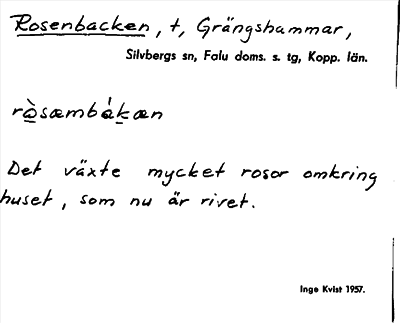 Rosenbacken, t, Grängshammar,
Silvbergs sn, Falu doms. s. tg, Kopp. län.
ròsæmbákæn
Det växte mycket rosor omkring
huset, som nu är rivet.
Inge Kvist 1957.